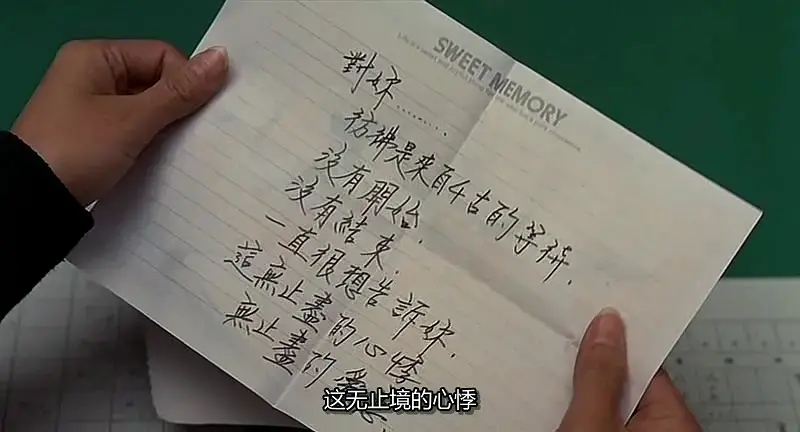 SWEET MEMORY
對妳………
彷彿是來自千古的等待.
沒有開始.
沒有結束.
一直很想告訴妳.
這無止盡的心悸
無止盡的
这无止境的心悸